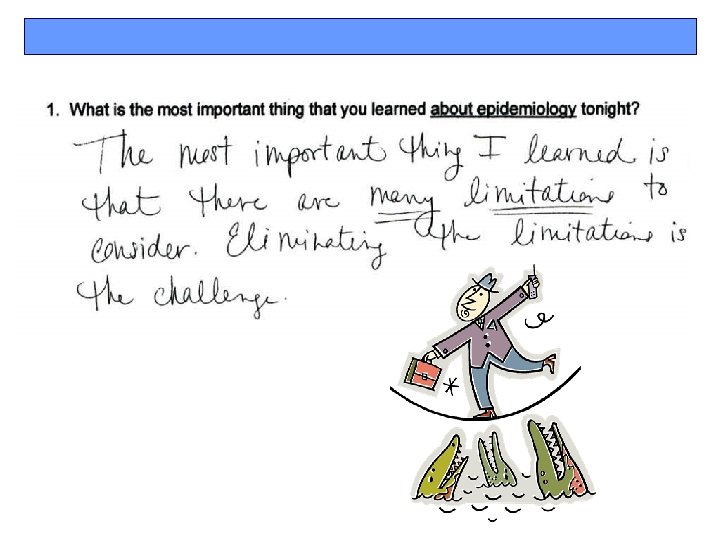 1. What is the most important thing that you learned about epidemiology tonight?
The most important thing I learned is
that there are many limitations to
consider. Eliminating the limitations is
the challenge.